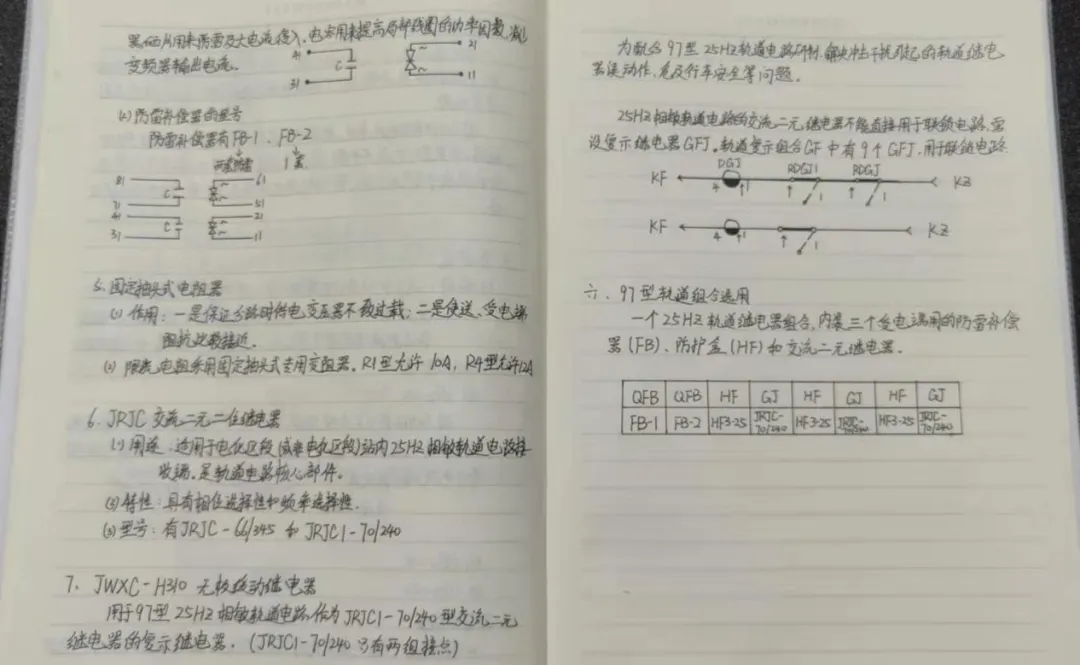 硒片用来防雷及大电流侵入,电容用来提高局部线圈的功率因数,减少
变频器输出电流。
41 21
C
31 11
(4) 防雷补偿器的型号
防雷补偿器有FB-1、FB-2
两套 1套
81 61
C
71 51
41 21
C
31 11
5. 固定抽头式电阻器
(1) 作用:一是保证分路时送电变压器不致过载;二是使送、受电端
阻抗比较接近。
(2) 限流电阻采用固定抽头式专用变阻器。R1型允许10A,R4型允许12A
6、JRJC 交流二元二位继电器
(1) 用途:适用于电化区段(或非电化区段)站内25Hz相敏轨道电路接
收端。是轨道电路核心部件。
(2) 特性:具有相位选择性和频率选择性.
(3) 型号:有JRJC-66/345 和 JRJC1-70/240
7、JWXC-H310 无极缓动继电器
用于97型25HZ相敏轨道电路作为JRJC1-70/240型交流二元
继电器的复示继电器.(JRJC1-70/240只有两组接点)
为配合97型25HZ轨道电路研制,解决冲击干扰引起的轨道继电
器误动作、危及行车安全等问题.
25HZ相敏轨道电路的交流二元继电器不能直接用于联锁电路,需
设复示继电器GFJ。轨道复示组合GF中有9个GFJ,用于联锁电路
DGJ RDGJ1 RDGJ
KF 4 1 1 1 KZ
KF 4 1 1 KZ
六、97型轨道组合选用
一个25HZ轨道继电器组合,内装三个受电端用的防雷补偿
器(FB)、防护盒(HF)和交流二元继电器.
QFB QFB HF GJ HF GJ HF GJ
FB-1 FB-2 HF3-25 JRJC-70/240 HF3-25 JRJC-70/240 HF3-25 JRJC-70/240